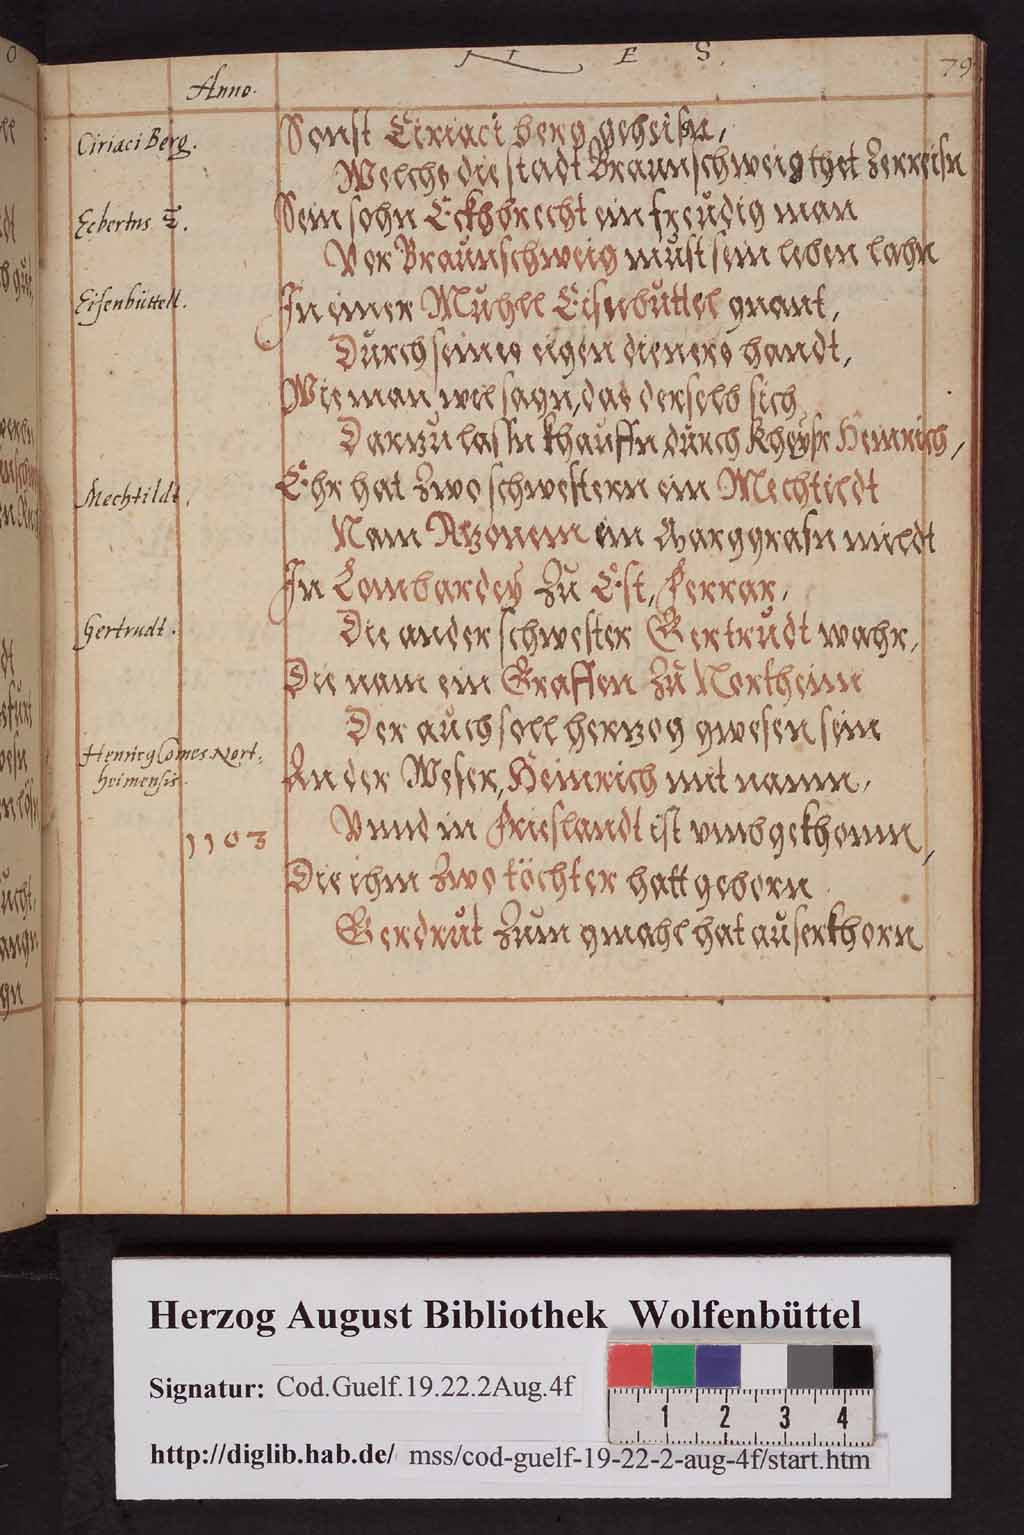 N E S.
79
Anno.
Ciriaci Berg.
Sonst Ciriaci berg geheisn,
Welchs die stadt Braunschweig thet Zerreisn
Ecbertus
Sein sohn Eckhbrecht ein freudig man
Vor Braunschweig must sein leben lahn
Eisenbüttell.
In einer Muhll Eisnbuttel gnant,
Durch seines eigen dieners handt,
Wie man wil sagn, das derselb sich
Darzu lassn khauffn durch Kheysr Heinrich,
Mechtildt.
Ehr hat Zwo schwestern ein Mechtildt
Nam Azonem ein Marggrafn mildt
In Lombardey Zu Est, Ferrar,
Gertrudt.
Die ander schwester Gertrudt wahr,
Die nam ein Graffen Zu Northeim
Der auch soll herzog gwesen sein
Henric9 Comes Nort-
heimensis.
An der Weser, Heinrich mit namn,
1103
Vnnd in Frieslandt ist vmbgekhomn,
Die ihm Zwo töchter hatt geborn
Gerdrut Zum gmahl hat auserkhorn
Herzog August Bibliothek Wolfenbüttel
Signatur: Cod.Guelf.19.22.2Aug.4f
1 2 3 4
http://diglib.hab.de/ mss/cod-guelf-19-22-2-aug-4f/start.htm